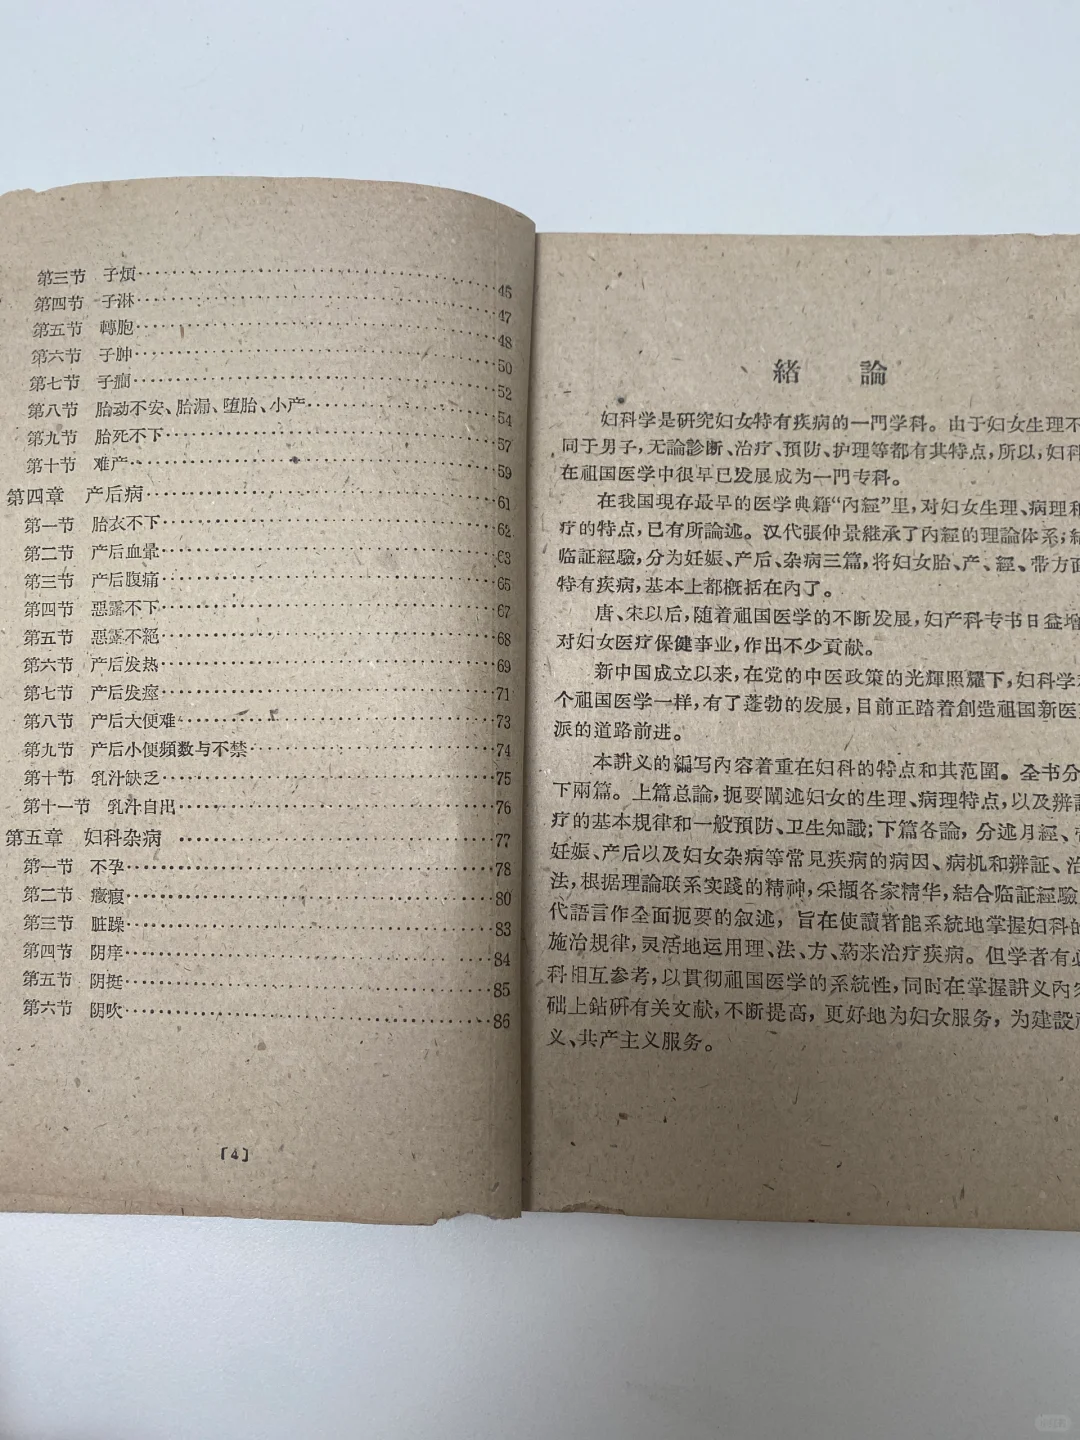 第三节 子煩 45
第四节 子淋 47
第五节 轉胞 48
第六节 子肿 50
第七节 子癎 52
第八节 胎动不安、胎漏、堕胎、小产 54
第九节 胎死不下 57
第十节 难产 59
第四章 产后病 61
第一节 胎衣不下 62
第二节 产后血暈 63
第三节 产后腹痛 65
第四节 惡露不下 67
第五节 惡露不絕 68
第六节 产后发热 69
第七节 产后发痙 71
第八节 产后大便难 73
第九节 产后小便頻数与不禁 74
第十节 乳汁缺乏 75
第十一节 乳汁自出 76
第五章 妇科杂病 77
第一节 不孕 78
第二节 癥瘕 80
第三节 脏躁 83
第四节 阴痒 84
第五节 阴挺 85
第六节 阴吹 86
〔4〕
緒 論
妇科学是研究妇女特有疾病的一門学科。由于妇女生理不
同于男子，无論診断、治疗、預防、护理等都有其特点，所以，妇科
在祖国医学中很早已发展成为一門专科。
在我国現存最早的医学典籍“內經”里，对妇女生理、病理和
疗的特点，已有所論述。汉代張仲景継承了內經的理論体系；結
临証經驗，分为妊娠、产后、杂病三篇，将妇女胎、产、經、带方面
特有疾病，基本上都概括在內了。
唐、宋以后，随着祖国医学的不断发展，妇产科专书日益增
对妇女医疗保健事业，作出不少貢献。
新中国成立以来，在党的中医政策的光輝照耀下，妇科学
个祖国医学一样，有了蓬勃的发展，目前正踏着創造祖国新医
派的道路前进。
本講义的編写內容着重在妇科的特点和其范圍。全书分
下兩篇。上篇总論，扼要闡述妇女的生理、病理特点，以及辨証
疗的基本規律和一般預防、卫生知識；下篇各論，分述月經、
妊娠、产后以及妇女杂病等常見疾病的病因、病机和辨証、治
法，根据理論联系实踐的精神，采擷各家精华，結合临証經驗
代語言作全面扼要的叙述，旨在使讀者能系統地掌握妇科的
施治規律，灵活地运用理、法、方、葯来治疗疾病。但学者有必
科相互参考，以貫彻祖国医学的系統性，同时在掌握講义內容
础上鈷研有关文献，不断提高，更好地为妇女服务，为建設
义、共产主义服务。